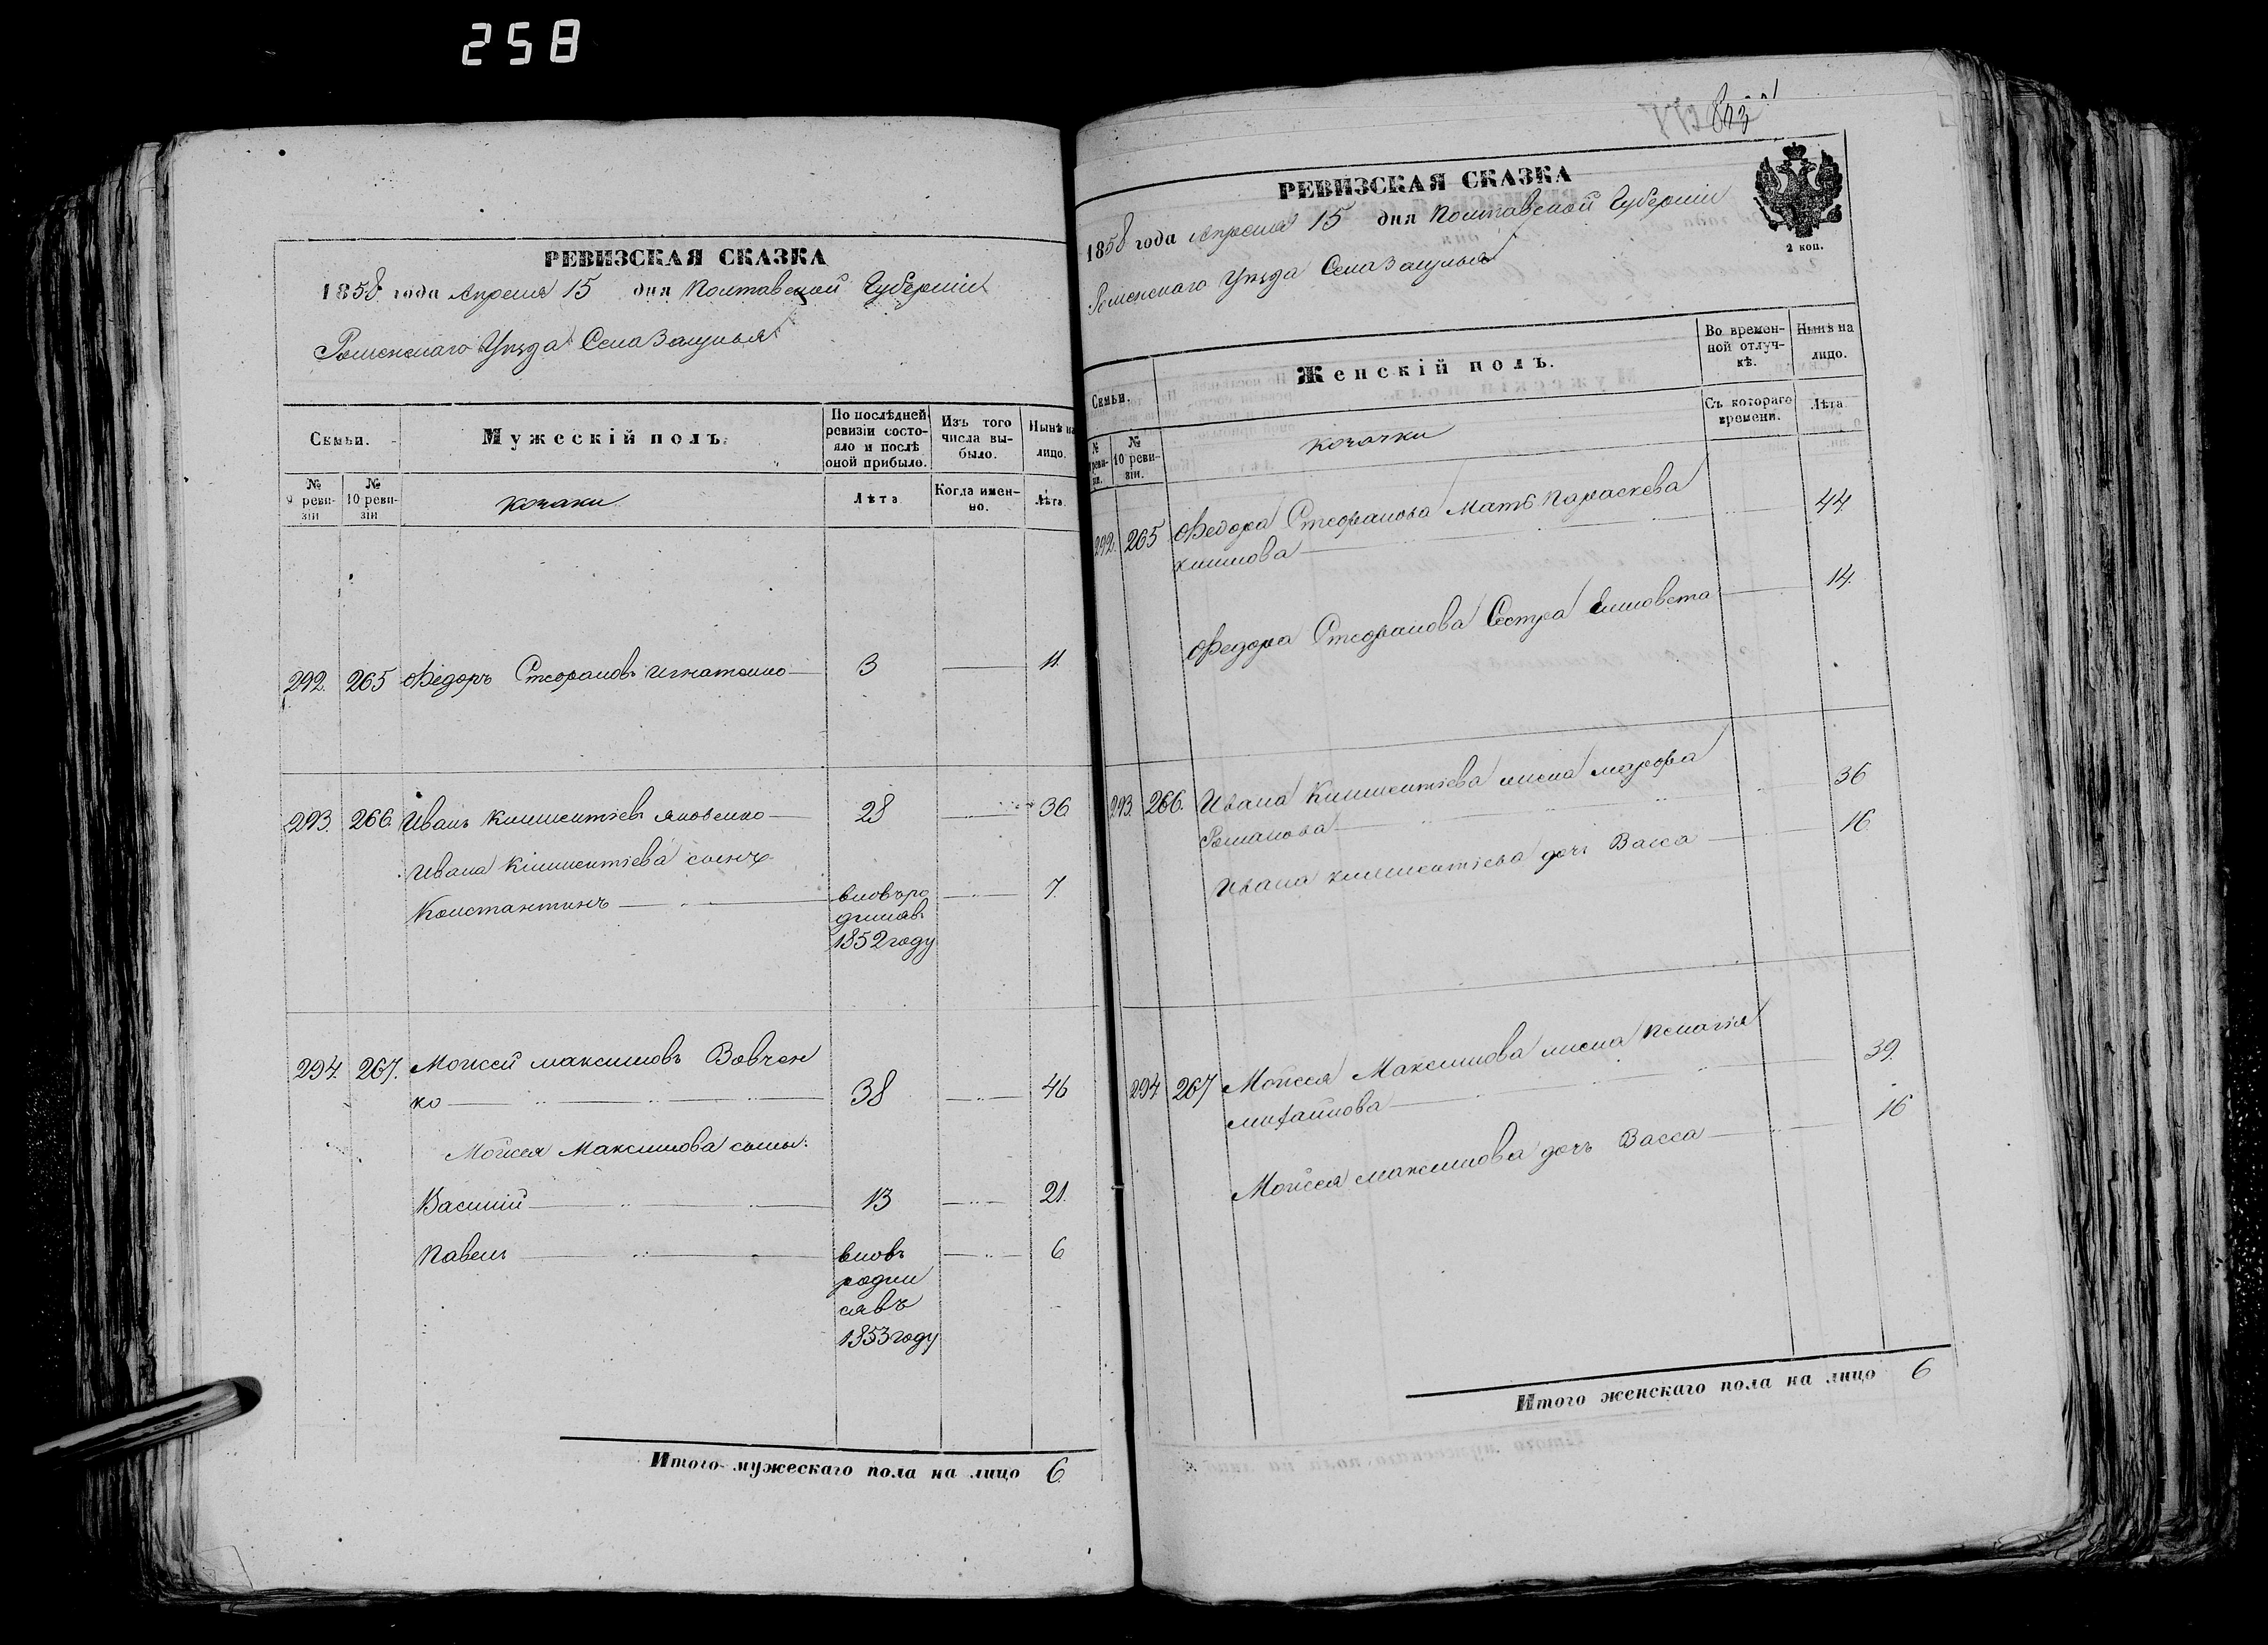 258
РЕВИЗСКАЯ СКАЗКА
1858 года Апреля 15 дня Полтавской Губерніи
Роменскаго Уѣзда Села Засулья
Семьи.
Мужескій полъ.
По послѣдней ревизіи состояло и послѣ оной прибыло.
Изъ того числа выбыло.
Нынѣ на лицо.
№ 9 ревизіи
№ 10 ревизіи
козаки
Лѣта
Когда именно.
Лѣта.
292. 265 Ѳедоръ Стефановъ Игнатенко 3 11.
293. 266. Иванъ Климентіевъ Яковенко 28 36
Ивана Климентіева сынъ
Константинъ вновь ро 7.
дился въ
1852 году
294. 267. Моисей Максимовъ Вовчен
ко 38 46
Мойсея Максимова сыны:
Василій 13 21.
Павелъ вновь 6
роди
ся въ
1853 году
Итого мужескаго пола на лицо 6.
823
РЕВИЗСКАЯ СКАЗКА
1858 года Апреля 15 дня Полтавской Губерніи
Роменскаго Уѣзда Села Засулья
2 коп.
Семьи.
Женскій полъ.
Во временной отлучкѣ.
Нынѣ на лицо.
№ 9 ревизіи.
№ 10 ревизіи.
козачки
Съ котораго времени.
Лѣта
292. 265 Ѳедора Стефанова Мать Параскева 44
климова
Ѳедора Стефанова Сестра Елисовета 14.
293. 266. Ивана Климентіева жена марфа 36
Романова
Ивана климентіева дочь Васса 16.
294 267 Мойсея Максимова жена Пелагія 39.
михайлова
Мойсея максимова дочь Васса 16
Итого женскаго пола на лицо 6